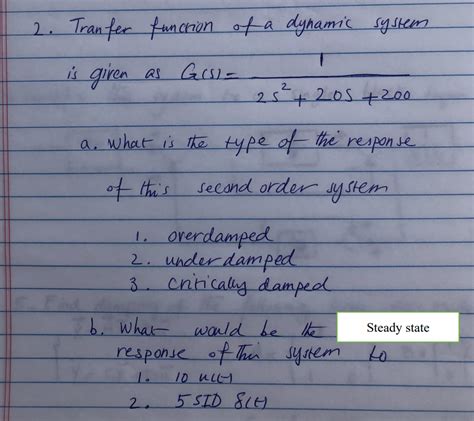 2. Tranfer function of a dynamic system
is given as G(s) = 1 / 2s² + 20s + 200
a. What is the type of the response
of this second order system
1. overdamped
2. underdamped
3. Critically damped
b. What would be the Steady state
response of this system to
1. 10 u(t)
2. 5 SID δ(t)